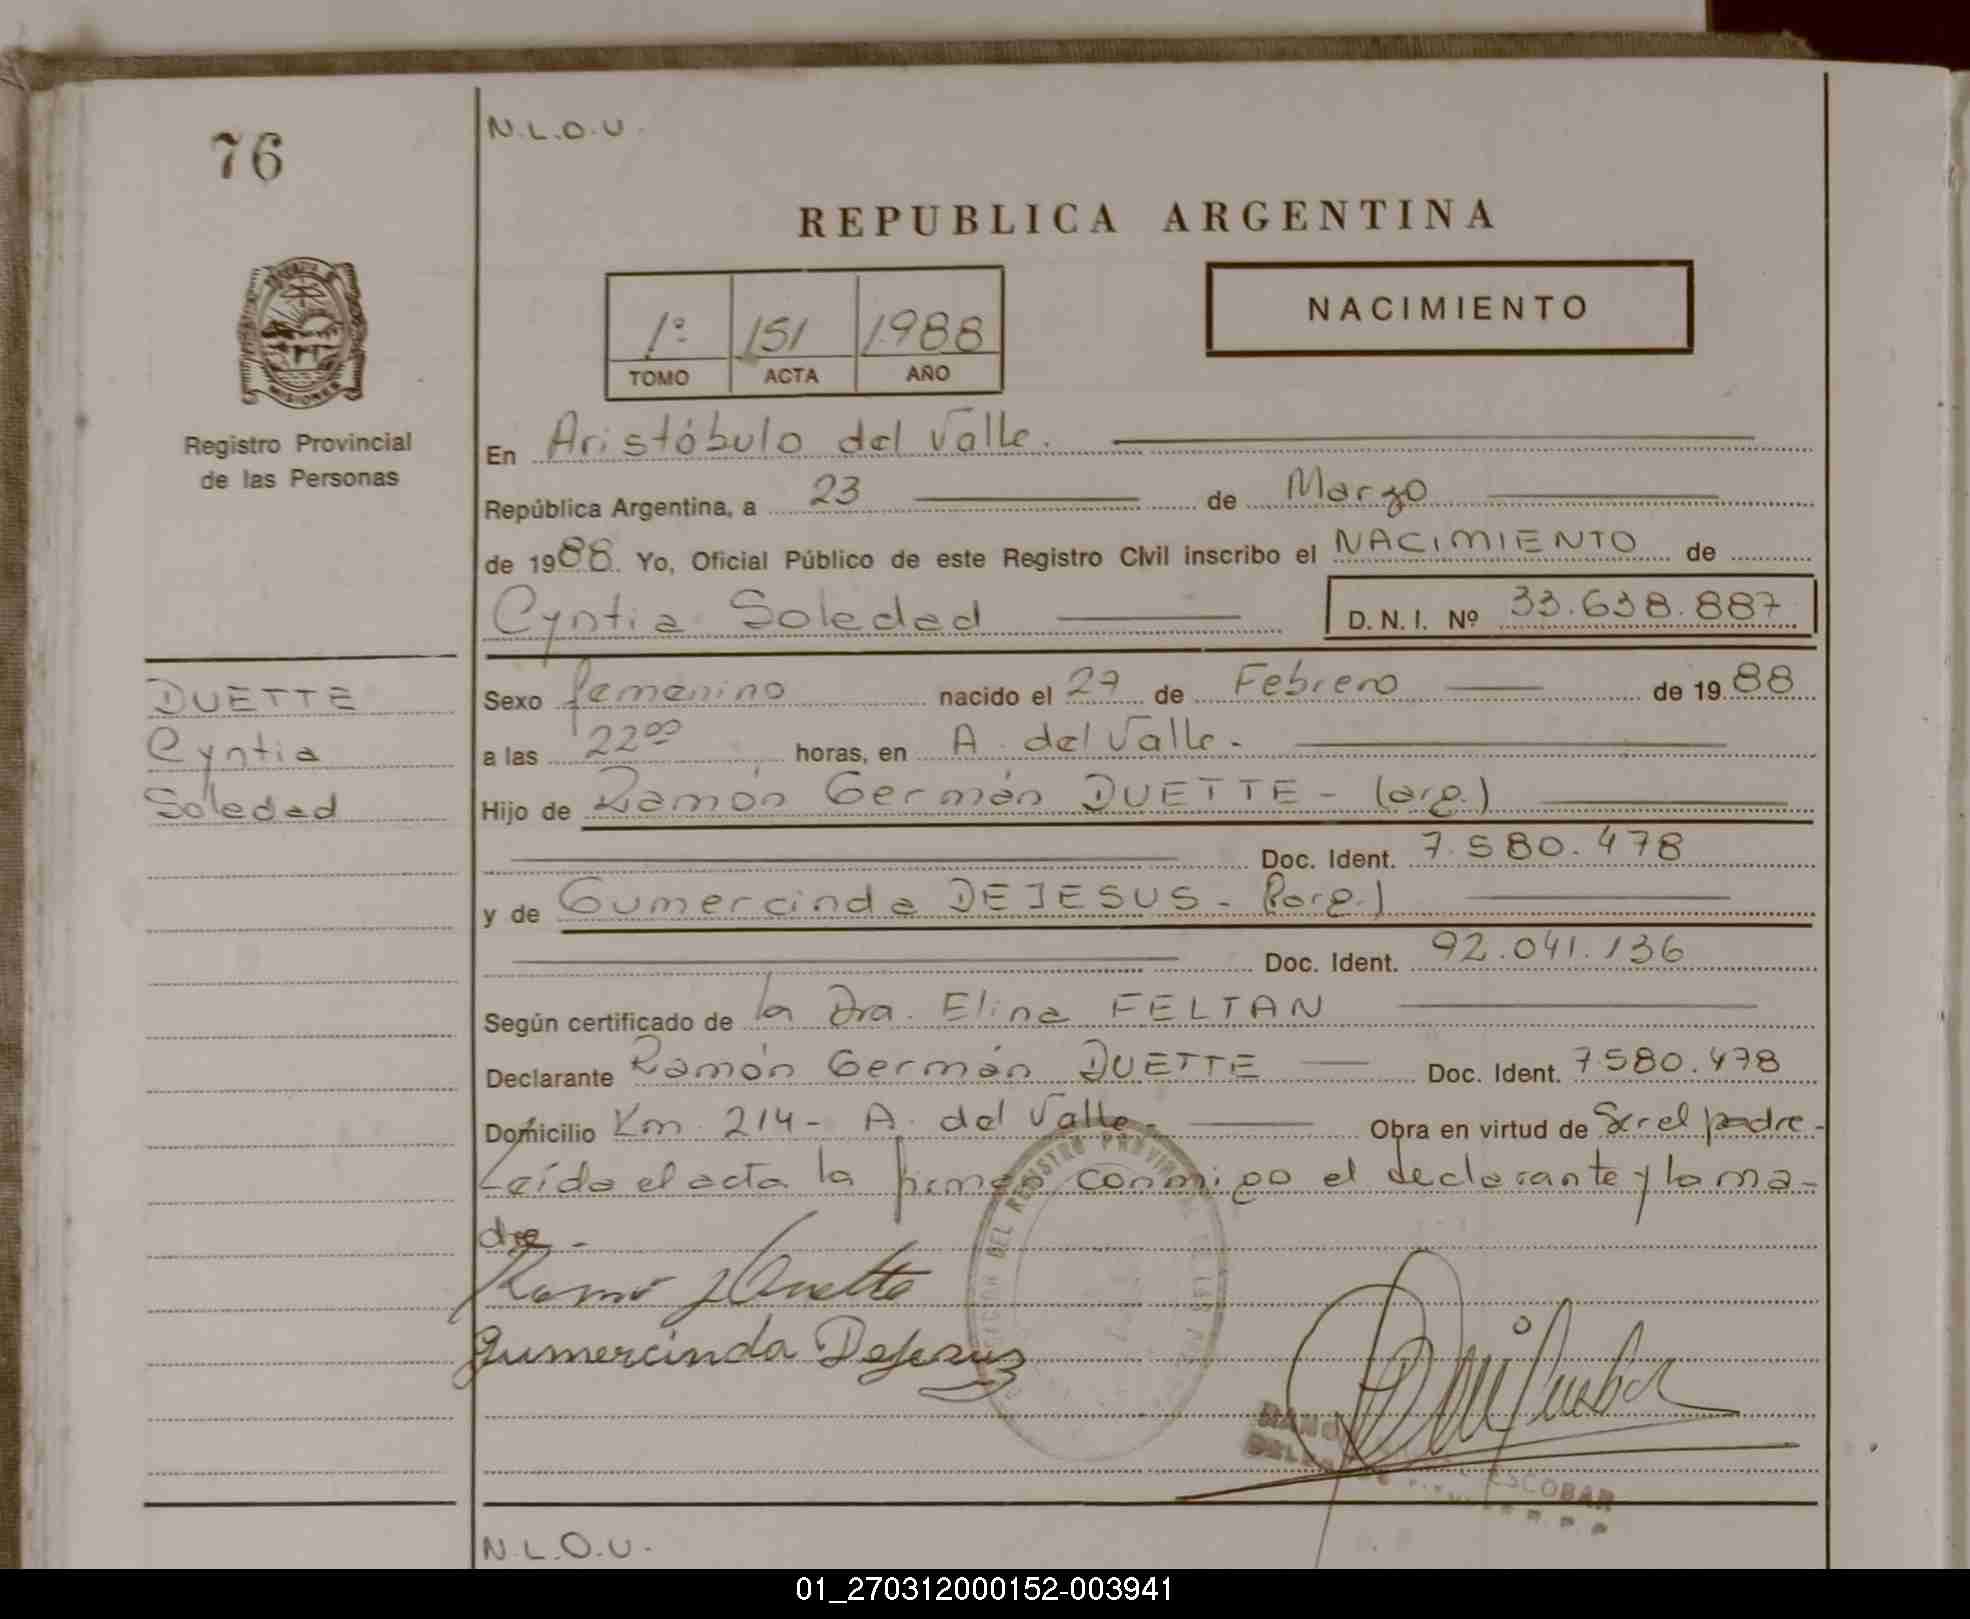 76
N.L.O.U.
REPUBLICA ARGENTINA
NACIMIENTO
1º 151 1988
TOMO ACTA AÑO
MISIONES
Registro Provincial
de las Personas
En Aristóbulo del Valle.
República Argentina, a 23 de Marzo
de 1988. Yo, Oficial Público de este Registro Civil inscribo el NACIMIENTO de
Cyntia Soledad D.N.I. Nº 33.638.887
DUETTE
Cyntia
Soledad
Sexo femenino nacido el 27 de Febrero de 1988
a las 22⁰⁰ horas, en A. del Valle.
Hijo de Ramón Germán DUETTE - (arg.)
Doc. Ident. 7.580.478
y de Gumercinda DEJESUS - (arg.)
Doc. Ident. 92.041.136
Según certificado de la Dra. Elina FELTAN
Declarante Ramón Germán DUETTE Doc. Ident. 7.580.478
Domicilio Km. 214 - A. del Valle. Obra en virtud de Ser el padre -
Leída el acta la firman conmigo el declarante y la ma-
dre -
Gumercinda Dejesus
DEL REGISTRO PROVINCIAL DE LAS
ESCOBAR
N.L.O.U.
01_270312000152-003941